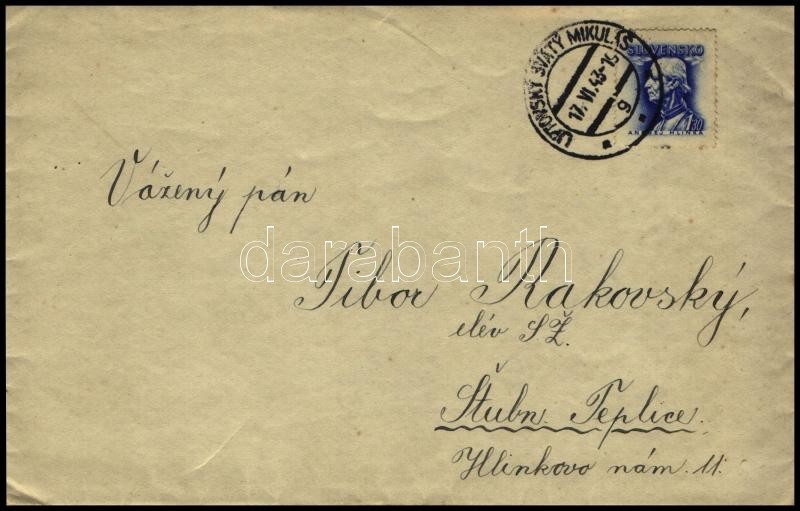 LIPTOVSKÝ SVÄTÝ MIKULÁŠ
17.VI.43-15
g
SLOVENSKO
1.30
ANDREJ HLINKA
Vážený pán
darabanth
Tibor Rakovský,
elév SŽ.
Štubn. Teplice.
Hlinkovo nám. 11.